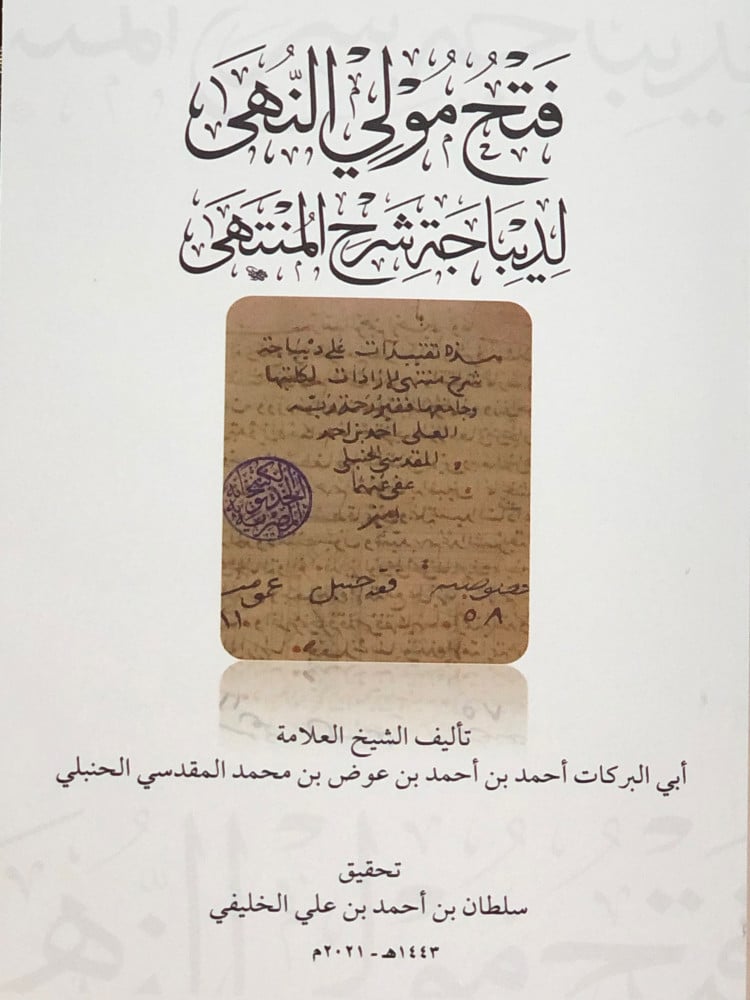 فَتْحُ مُوْلِي النُّهَى
لِدِيْبَاجَةِ شَرْحِ المُنْتَهَى
هذه تقييدات على ديباجة
شرح منتهى الإرادات لكاتبها
وجامعها فقير رحمة ربه
العلى احمد بن احمد
المقدسي الحنبلي
عفى عنهما
امين
الكتبخانة
الخديوية
المصرية
خصوصيه فقه حنبل عموميه
٥٨
تأليف الشيخ العلامة
أبي البركات أحمد بن أحمد بن عوض بن محمد المقدسي الحنبلي
تحقيق
سلطان بن أحمد بن علي الخليفي
١٤٤٣هـ - ٢٠٢١م